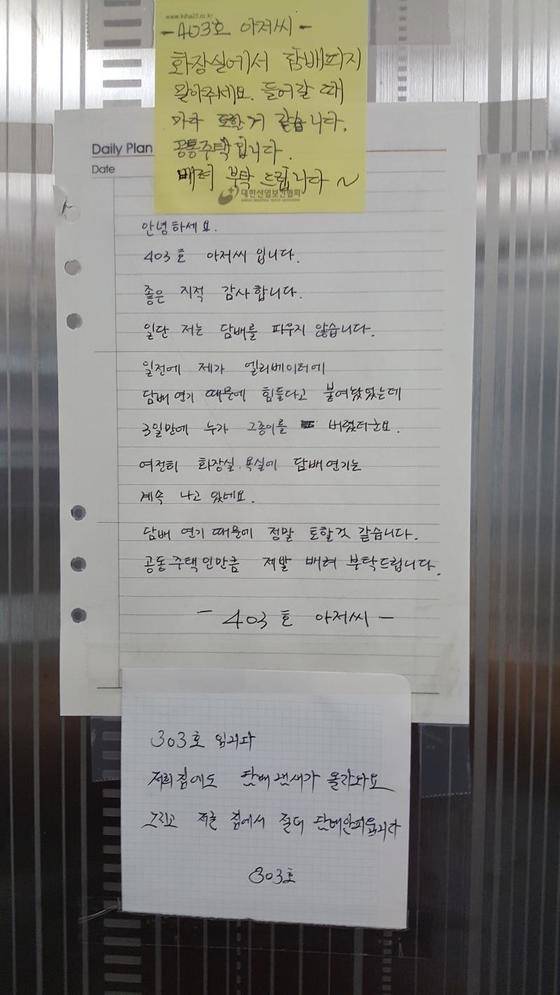 - 403호 아저씨 -
화장실에서 담배피지
말아주세요. 들어갈 때
마다 토할거 같습니다.
공동주택입니다.
배려 부탁 드립니다 ~
대한산업보건협회
Daily Plan
Date
안녕하세요.
403호 아저씨 입니다.
좋은 지적 감사합니다.
일단 저는 담배를 피우지 않습니다.
일전에 제가 엘리베이터에
담배연기 때문에 힘들다고 붙여놨었는데
3일만에 누가 그종이를 버렸더군요.
여전히 화장실.욕실에 담배연기는
계속 나고 있네요.
담배 연기 때문에 정말 토할것 같습니다.
공동주택인만큼 제발 배려 부탁드립니다.
- 403호 아저씨 -
303호 입니다
저희집에도 담배 냄새가 올라와요
그리고 저흰 집에서 절대 담배안피웁니다
303호